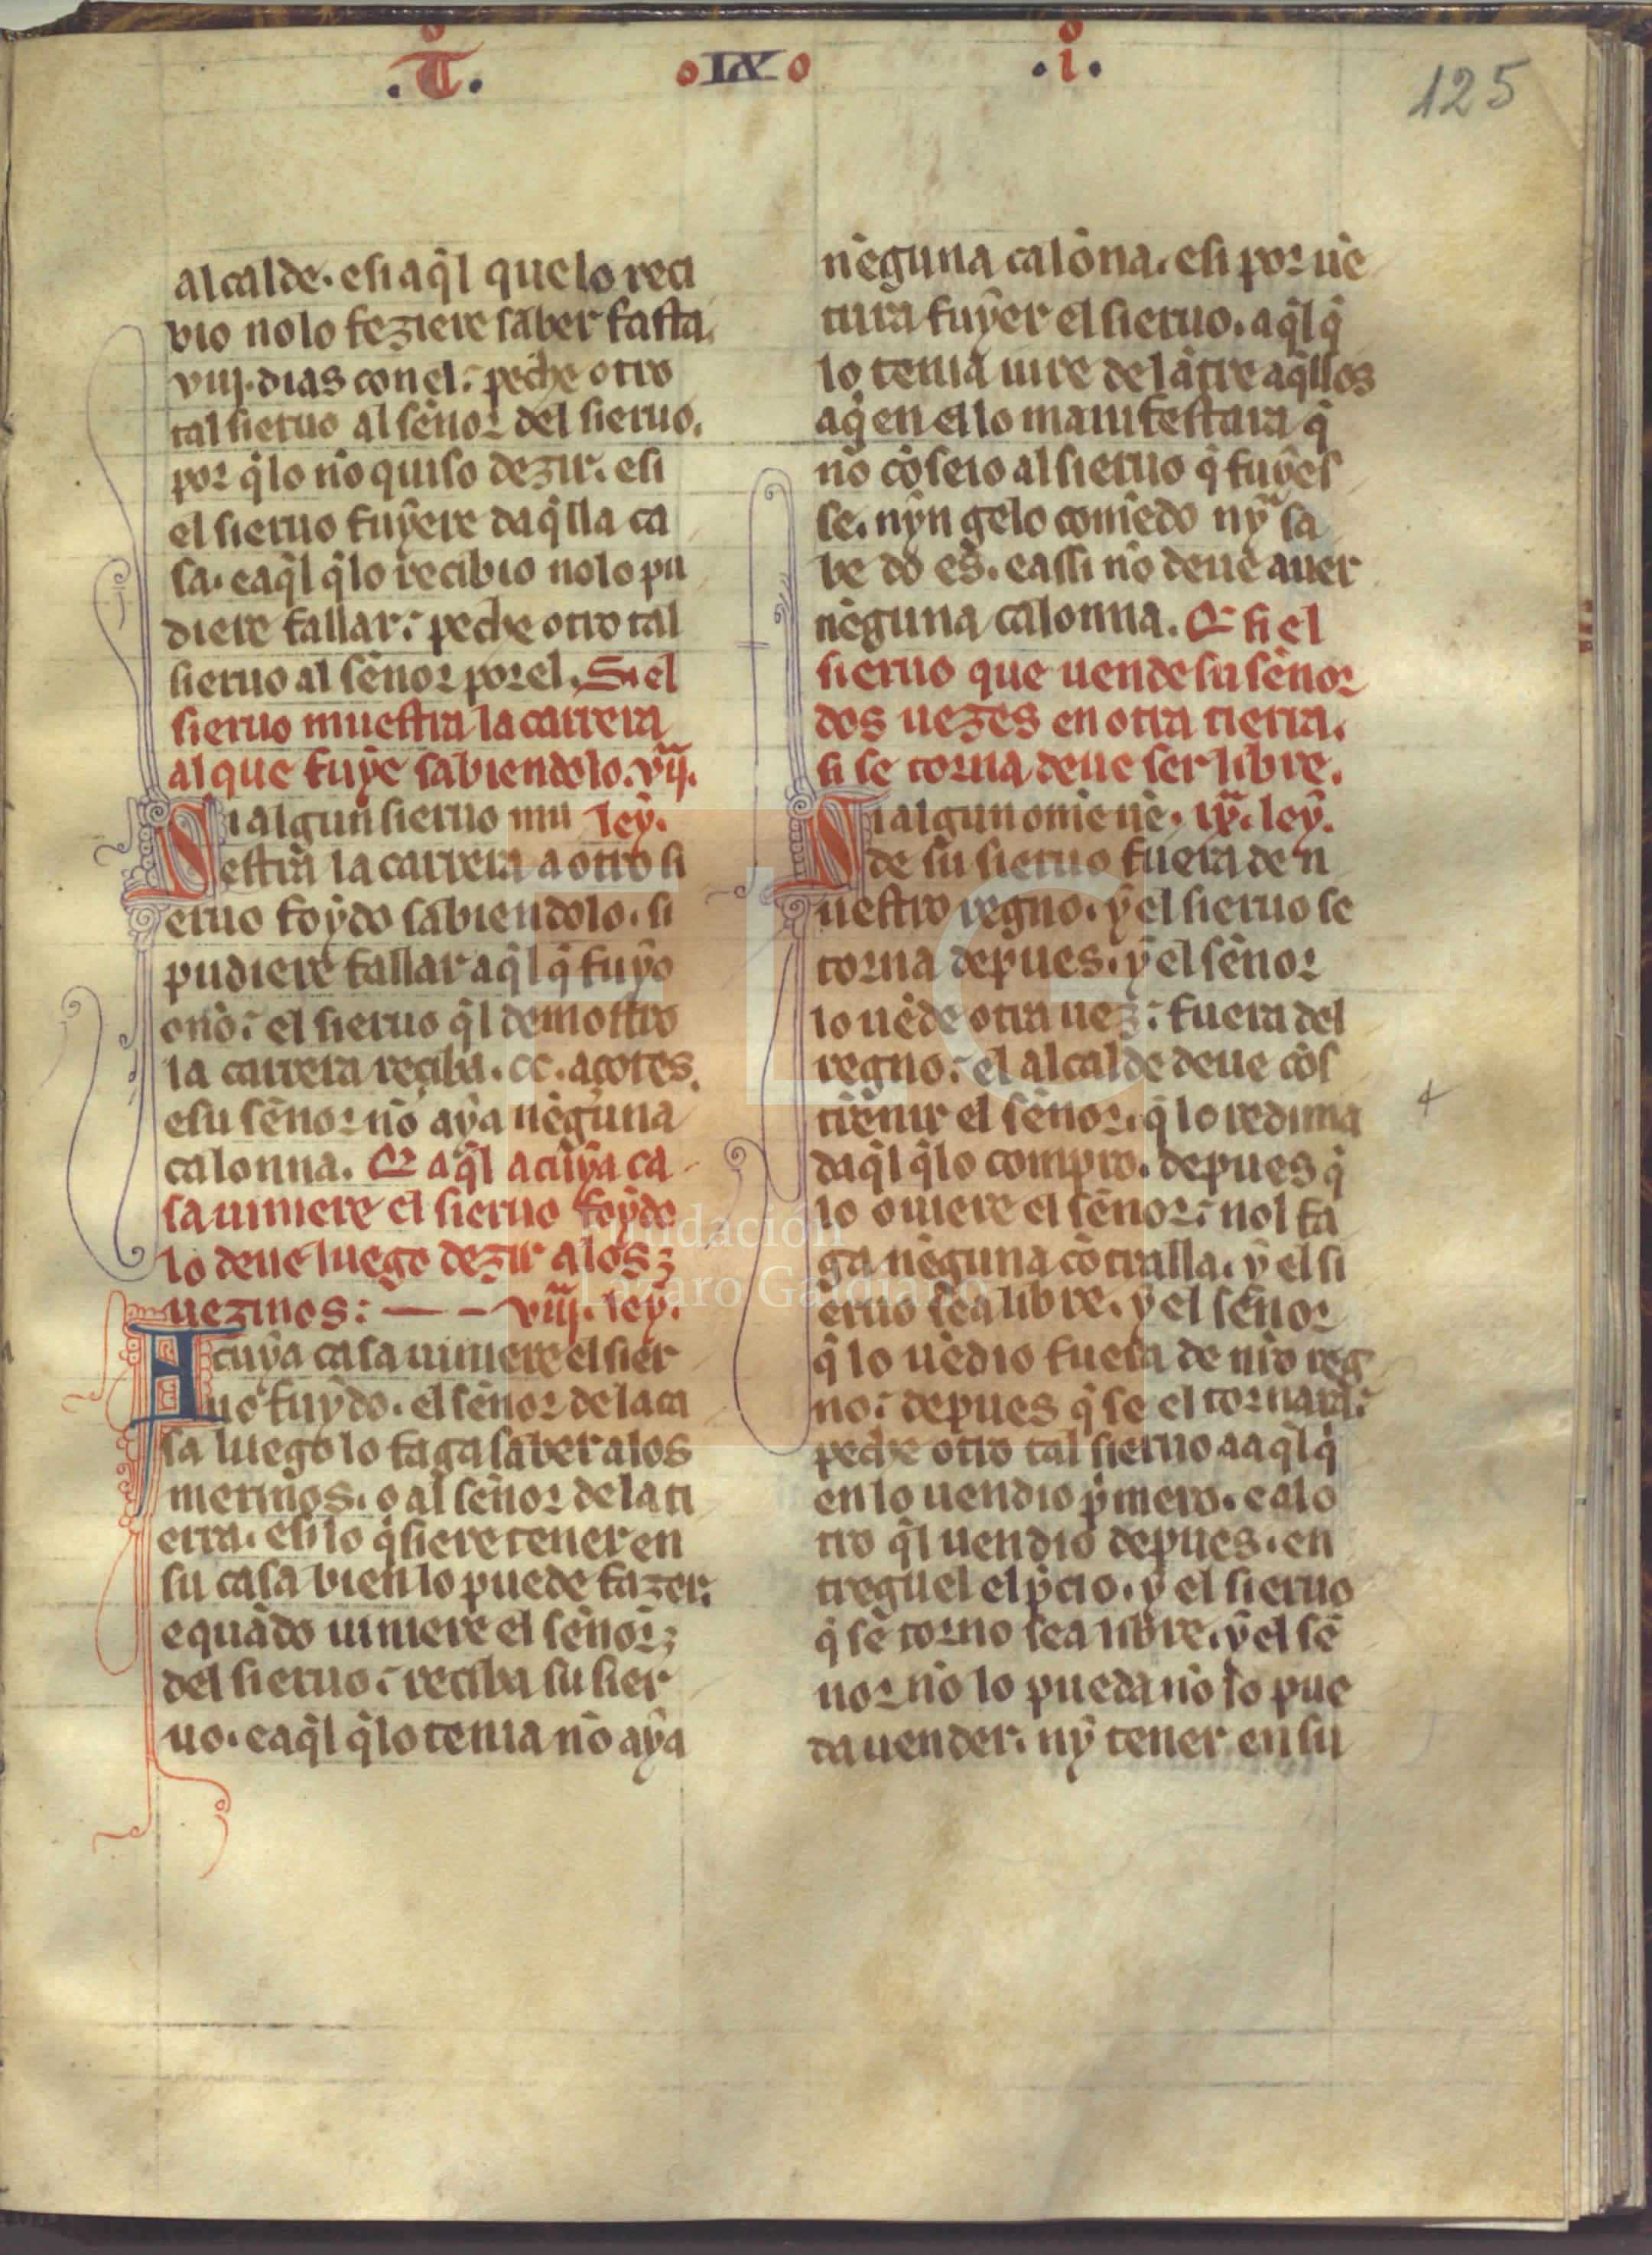 .T.
IX
.i.
125
alcalde. e si aq̃l que lo reci
bio no lo feziere saber fasta
viij. dias con el: peche otro
tal sieruo al sẽnor del sieruo.
por q̃ lo nõ quiso dezir. e si
el sieruo fuẏere daq̃lla ca
sa. e aq̃l q̃ lo recibio no lo pu
diere fallar: peche otro tal
sieruo al sẽnor por el. Si el
sieruo muestra la carrera
al que fuẏe sabiendolo. vij.
Si algun sieruo mu leẏ.
estra la carrera a otro si
eruo foẏdo sabiendolo. si
pudiere fallar aq̃l q̃ fuẏo
o nõ: el sieruo q̃l demostro
la carrera reciba. cc. açotes.
e su sẽnor nõ aẏa nẽguna
calonna. Q̃ aq̃l a cuẏa ca
sa uiniere el sieruo foẏdo
lo deue luego dezir a los
uezinos: viij. leẏ.
A cuẏa casa uiniere el sier
uo fuẏdo. el sẽnor de la ca
sa luego lo faga saber a los
merinos. o al sẽnor de la ti
erra. e si lo q̃siere tener en
su casa bien lo puede fazer.
e quãdo uiniere el sẽnor
del sieruo: reciba su sier
uo. e aq̃l q̃ lo tenia nõ aẏa
nẽguna calõna. e si por uẽ
tura fuẏer el sieruo. aq̃l q̃
lo tenia iure delãtre aq̃llos
aq̃ en ello manifestara q̃
nõ cõseio al sieruo q̃ fuẏes
se. nẏn gelo comẽdo nẏ sa
be do es. e assi nõ deue auer
nẽguna calonna. Q̃ si el
sieruo que uende su sẽnor
dos uezes en otra tierra.
si se torna deue ser libre.
Si algun ome uẽ. ix. leẏ.
de su sieruo fuera de n
uestro regno. ẏ el sieruo se
torna depues. ẏ el sẽnor
lo uẽde otra uez: fuera del
regno: el alcalde deue cõs
trẽnir el sẽnor. q̃ lo redima
daq̃l q̃ lo compro. depues q̃
lo ouiere el sẽnor: nol fa
ga nẽguna cõtralla. ẏ el si
eruo sea libre. ẏ el sẽnor
q̃ lo uẽdio fuera de nr̃o reg
no: depues q̃ se el tornara:
peche otro tal sieruo a aq̃l q̃
en lo uendio p̃mero. e al o
tro q̃l uendio depues. en
treguel el p̃cio. ẏ el sieruo
q̃ se torno sea libre. ẏ el sẽ
nor nõ lo pueda nõ lo pue
da uender. nẏ tener en su
FLG
Fundación
Lázaro Galdiano